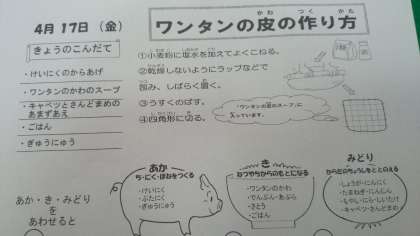 4月 17日（金）
きょうのこんだて
・けいにくのからあげ
・ワンタンのかわのスープ
・キャベツとさんどまめの
あまずあえ
・ごはん
・ぎゅうにゅう
ワンタンの皮の作り方
かわ つく かた
①小麦粉に塩水を加えてよくこねる。
②乾燥しないようにラップなどで
包み、しばらく置く。
③うすくのばす。
④四角形に切る。
「ワンタンの皮のスープ」に
入っています。
あか・き・みどり
を
あわせると
あか
ち・にく・ほねをつくる
・けいにく
・ぶたにく
・ぎゅうにゅう
き
ねつやちからのもとになる
・ワンタンのかわ
・でんぷん・あぶら
・さとう
・ごはん
みどり
からだのちょうしをととのえる
・しょうが・にんにく
・たまねぎ・にんじん
・もやし・にら・しいたけ
・キャベツ・さんどまめ